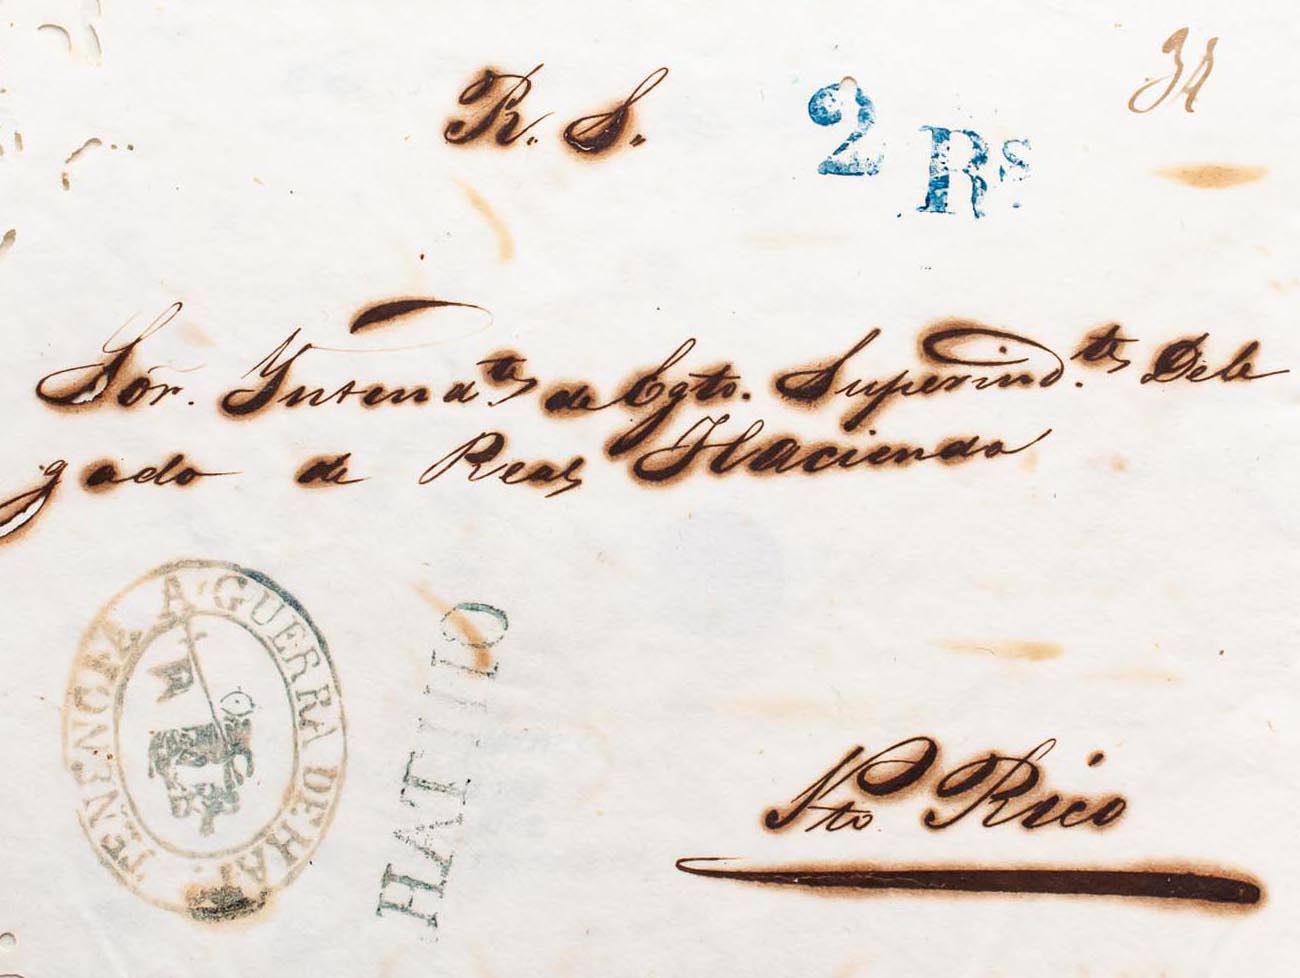 R. S.
2 Rs
Sor. Yntendte. de Egto. Superindte. Dele
gado de Real Hacienda
TENENCIA A GUERRA DE HAT
HATILLO
Pto Rico